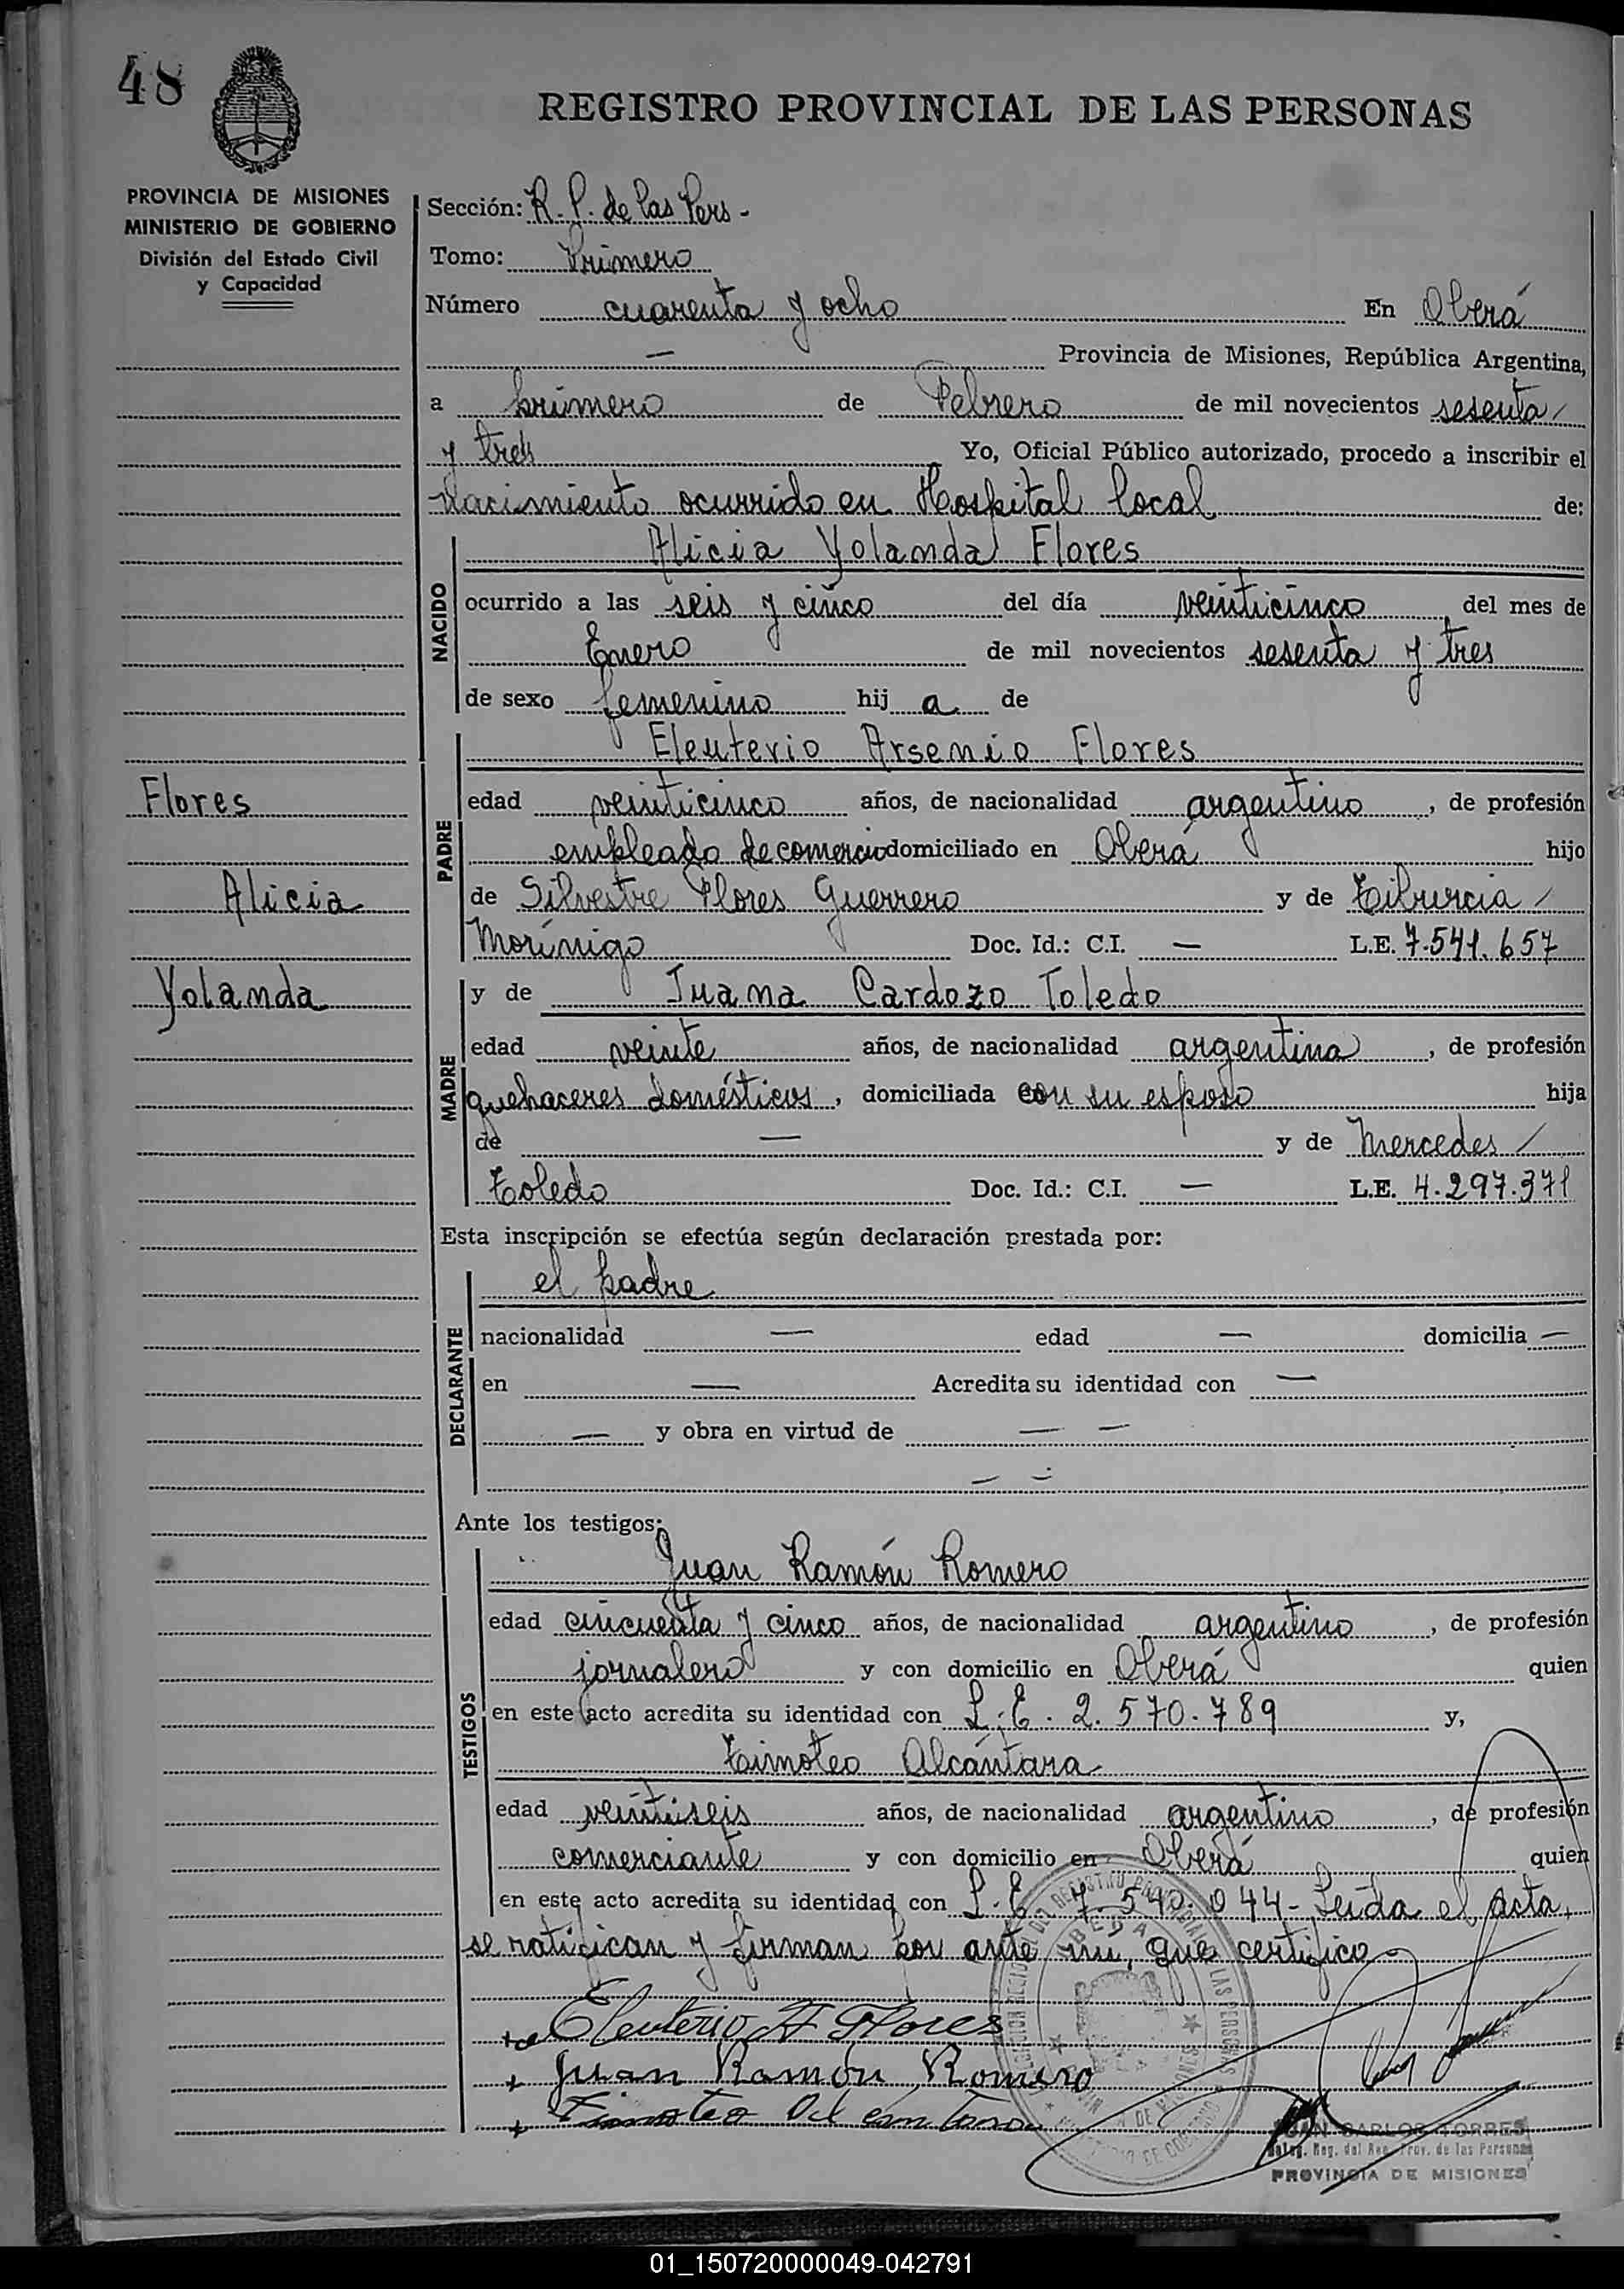 48
REGISTRO PROVINCIAL DE LAS PERSONAS
PROVINCIA DE MISIONES
MINISTERIO DE GOBIERNO
División del Estado Civil
y Capacidad
Sección: R. P. de las Pers -
Tomo: Primero
Número cuarenta y ocho En Oberá
— Provincia de Misiones, República Argentina,
a primero de Febrero de mil novecientos sesenta /
y tres Yo, Oficial Público autorizado, procedo a inscribir el
Nacimiento ocurrido en Hospital local de:
NACIDO
Alicia Yolanda Flores
ocurrido a las seis y cinco del día veinticinco del mes de
Enero de mil novecientos sesenta y tres
de sexo femenino hij a de
PADRE
Eleuterio Arsenio Flores
Flores
edad veinticinco años, de nacionalidad argentino, de profesión
empleado de comercio domiciliado en Oberá hijo
Alicia
de Silvestre Flores Guerrero y de Tiburcia /
Morínigo Doc. Id.: C.I. — L.E. 7.541.657
Yolanda
MADRE
y de Juana Cardozo Toledo
edad veinte años, de nacionalidad argentina, de profesión
quehaceres domésticos, domiciliada con su esposo hija
de — y de Mercedes /
Toledo Doc. Id.: C.I. — L.E. 4.297.371
Esta inscripción se efectúa según declaración prestada por:
DECLARANTE
el padre
nacionalidad — edad — domicilia —
en — Acredita su identidad con —
— y obra en virtud de — —
— —
Ante los testigos:
TESTIGOS
Juan Ramón Romero
edad cincuenta y cinco años, de nacionalidad argentino, de profesión
jornalero y con domicilio en Oberá quien
en este acto acredita su identidad con L.E. 2.570.789 y,
Timoteo Alcántara
edad veintiseis años, de nacionalidad argentino, de profesión
comerciante y con domicilio en Oberá quien
en este acto acredita su identidad con L.E. 7.540.044 - Leída el acta,
se ratifican y firman por ante mí, que certifico
Eleuterio A Flores
+ Juan Ramón Romero
+ Timoteo Alcantara
JUAN CARLOS TORRES
Deleg. Reg. del Reg. Prov. de las Personas
PROVINCIA DE MISIONES
01_150720000049-042791